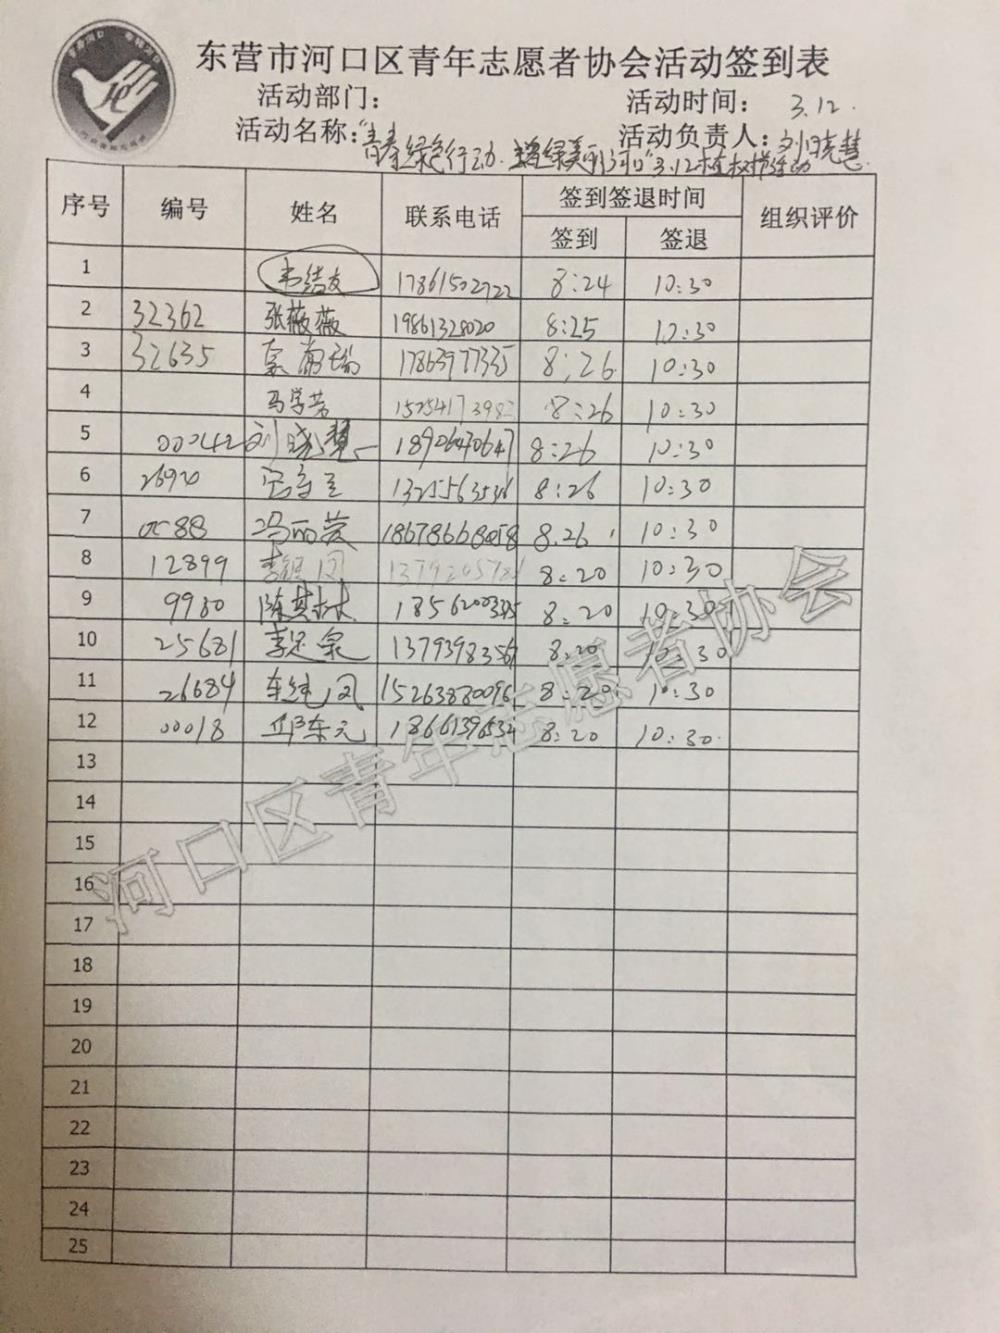 东营市河口区青年志愿者协会活动签到表
活动部门： 活动时间： 3.12.
活动名称："青春绿色行动. 增绿美丽河口"3.12植树节活动 活动负责人：刘晓慧
序号 编号 姓名 联系电话 签到签退时间 组织评价
签到 签退
1 17861502722 8:24 10:30
2 32362 张薇薇 19861328020 8:25 10:30
3 32635 17863977335 8:26 10:30
4 马学芳 8:26 10:30
5 00042 刘晓慧 18906470647 8:26 10:30
6 26920 8:26 10:30
7 冯丽蓉 8.26 10:30
8 12899 8:20 10:30
9 9980 陈其林 8:20 10:30
10 25681 李延泉 8:20 10:30
11 26684 8:20 10:30
12 00018 邱东元 8:20 10:30.
13
14
15
16
17
18
19
20
21
22
23
24
25
河口区青年志愿者协会